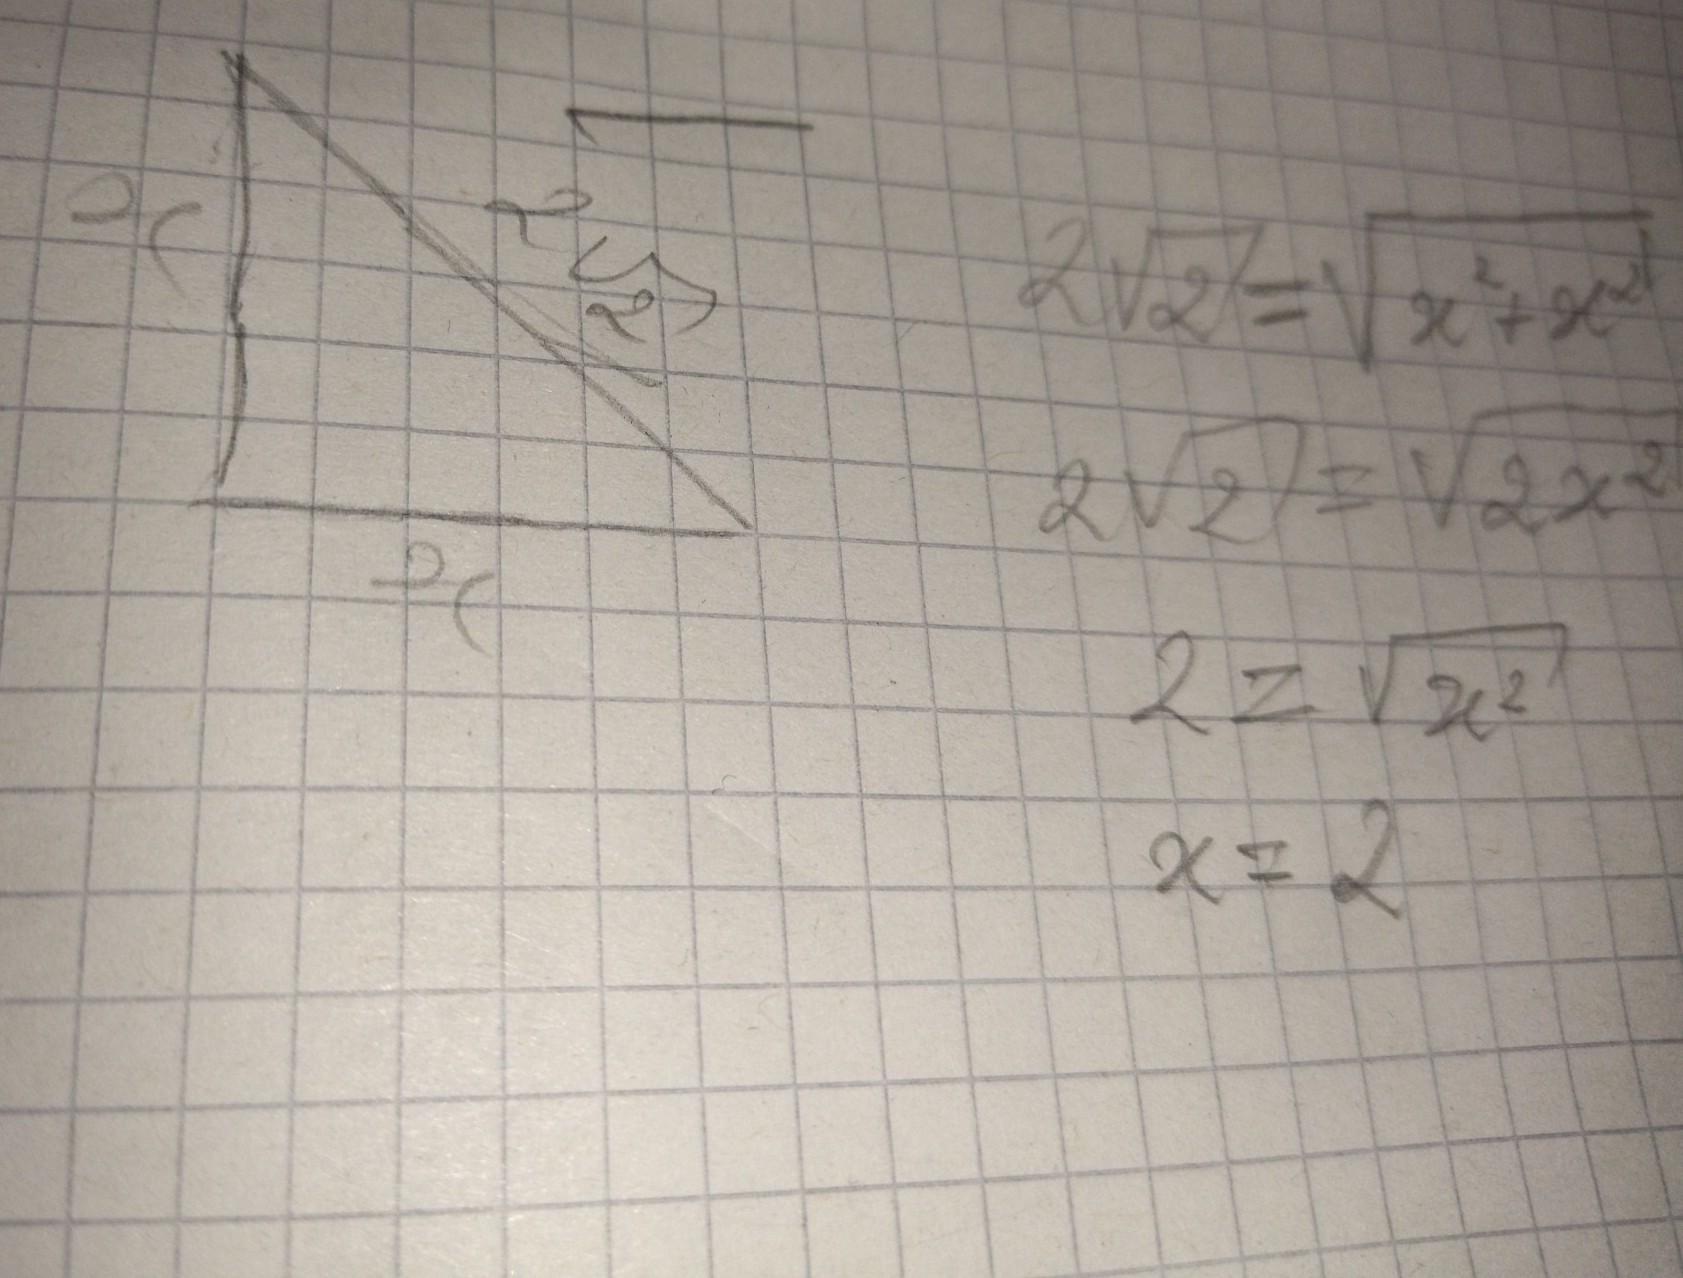 x
2√2
x
2√2 = √x² + x²
2√2 = √2x²
2 = √x²
x = 2